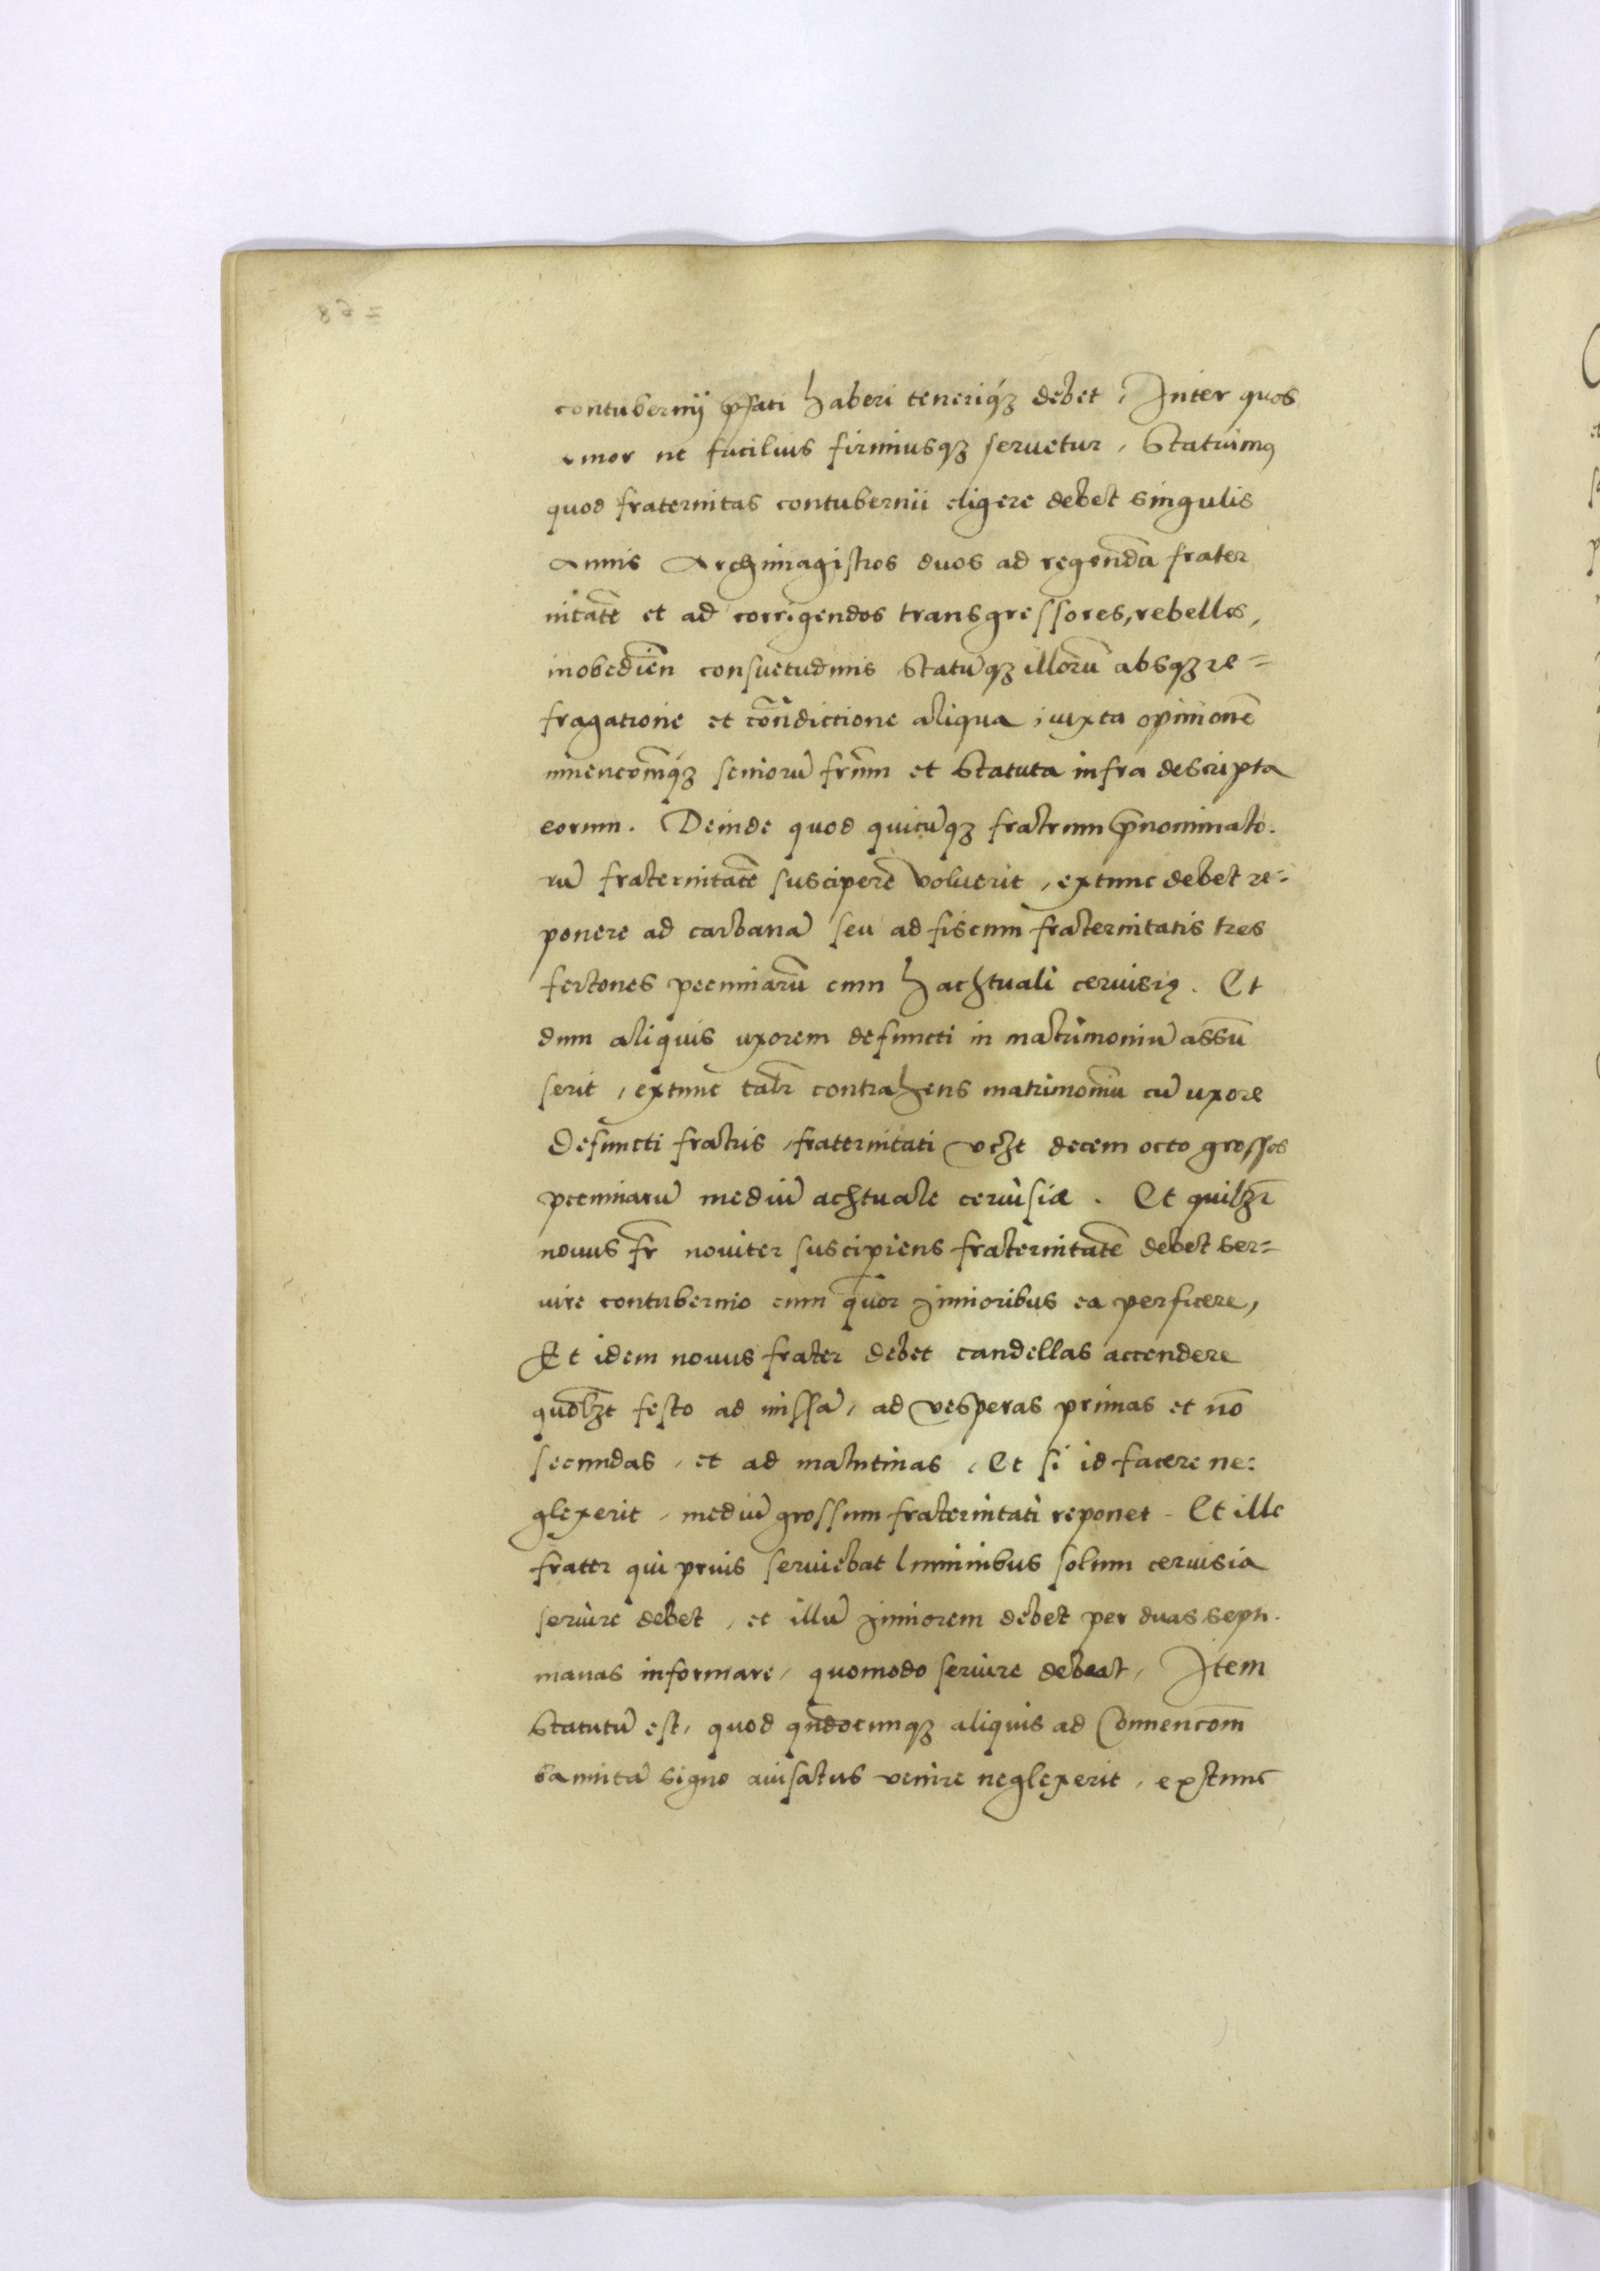 contubernij p̃fati haberi teneriqꝫ debet, Inter quos
amor ut facilius firmiusqꝫ seruetur, Statuimꝰ
quod fraternitas contubernii eligere debet singulis
Annis Archimagistros duos ad regendã frater
nitatẽ et ad corrigendos transgressores, rebelles,
inobedien̄ consuetudinis statuqꝫ illorũ absqꝫ re=
fragatione et cõtradictione aliqua, iuxta opinionẽ
seniorũ fr̃um et Statuta infra descripta
eorum. Deinde quod quicũqꝫ fratrum p̃nominato.
rũ fraternitatẽ suscipere voluerit, extunc debet re=
ponere ad carbanã seu ad fiscum fraternitatis tres
fertones pecuniarũ cum hachtuali ceruisię. Et
dum aliquis uxorem defuncti in matrimoniũ assũ
serit, extunc talr̃ contrahens matrimoniũ cũ uxore
Defuncti fratris, fraternitati decem octo grossos
pecuniarũ mediũ achtuale ceruisiæ. Et quilꝫr̃
nouus fr̃ noviter suscipiens fraternitatẽ debet ser=
uire contubernio cum q̃uor iunioribus ea perficere,
Et idem nouus frater debet candellas accendere
quolꝫt festo ad missã, ad vesperas primas et nõ
secundas, et ad matutinas, Et si id facere ne=
glexerit, mediũ grossum fraternitati reponet. Et ille
frater qui prius seruiebat luminibus solum ceruisia
seruire debet, et illũ iuniorem debet per duas septi.
manas informare, quomodo seruire debeat, Item
Statutũ est, quod qñdocunqꝫ aliquis ad Conuencom̃
signo auisatus venire neglexerit, extunc